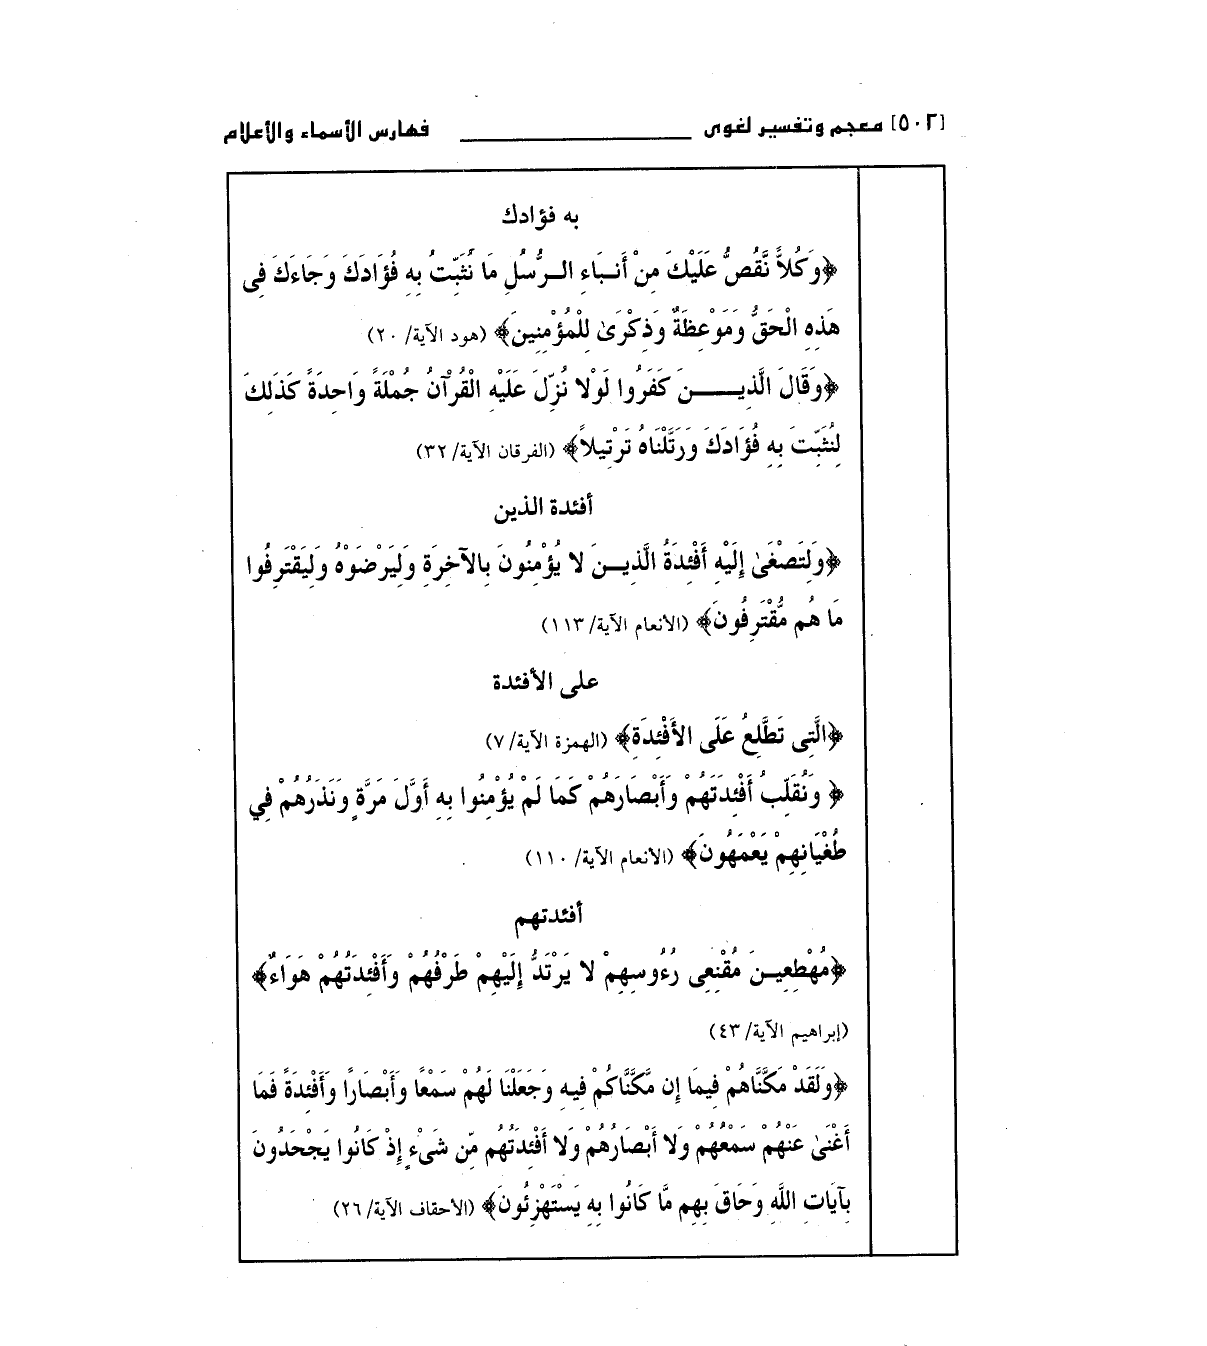 [٥٠٢] معجم وتفسير لغوى ــــــــــ فهارس الأسماء والأعلام
به فؤادك
﴿وَكُلاًّ نَّقُصُّ عَلَيْكَ مِنْ أَنبَاءِ الرُّسُلِ مَا نُثَبِّتُ بِهِ فُؤَادَكَ وَجَاءَكَ فِى
هَذِهِ الْحَقُّ وَمَوْعِظَةٌ وَذِكْرَىٰ لِلْمُؤْمِنِينَ﴾ (هود الآية/ ٢٠)
﴿وَقَالَ الَّذِينَ كَفَرُوا لَوْلا نُزِّلَ عَلَيْهِ الْقُرْآنُ جُمْلَةً وَاحِدَةً كَذَلِكَ
لِنُثَبِّتَ بِهِ فُؤَادَكَ وَرَتَّلْنَاهُ تَرْتِيلاً﴾ (الفرقان الآية/ ٣٢)
أفئدة الذين
﴿وَلِتَصْغَىٰ إِلَيْهِ أَفْئِدَةُ الَّذِينَ لا يُؤْمِنُونَ بِالآخِرَةِ وَلِيَرْضَوْهُ وَلِيَقْتَرِفُوا
مَا هُم مُّقْتَرِفُونَ﴾ (الانعام الآية/ ١١٣)
على الأفئدة
﴿الَّتِى تَطَّلِعُ عَلَى الأَفْئِدَةِ﴾ (الهمزة الآية/ ٧)
﴿ وَنُقَلِّبُ أَفْئِدَتَهُمْ وَأَبْصَارَهُمْ كَمَا لَمْ يُؤْمِنُوا بِهِ أَوَّلَ مَرَّةٍ وَنَذَرُهُمْ فِي
طُغْيَانِهِمْ يَعْمَهُونَ﴾ (الانعام الآية/ ١١٠)
أفئدتهم
﴿مُهْطِعِينَ مُقْنِعِى رُءُوسِهِمْ لا يَرْتَدُّ إِلَيْهِمْ طَرْفُهُمْ وَأَفْئِدَتُهُمْ هَوَاءٌ﴾
(إبراهيم الآية/ ٤٣)
﴿وَلَقَدْ مَكَّنَّاهُمْ فِيمَا إِن مَّكَّنَّاكُمْ فِيهِ وَجَعَلْنَا لَهُمْ سَمْعًا وَأَبْصَارًا وَأَفْئِدَةً فَمَا
أَغْنَىٰ عَنْهُمْ سَمْعُهُمْ وَلا أَبْصَارُهُمْ وَلا أَفْئِدَتُهُم مِّن شَىْءٍ إِذْ كَانُوا يَجْحَدُونَ
بِآيَاتِ اللَّهِ وَحَاقَ بِهِم مَّا كَانُوا بِهِ يَسْتَهْزِئُونَ﴾ (الاحقاف الآية/ ٢٦)